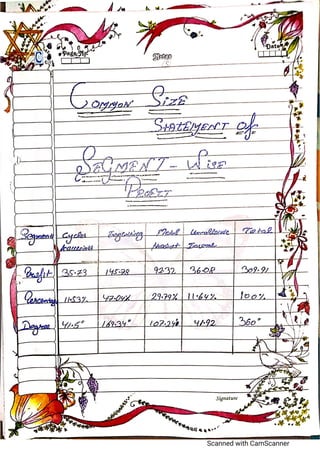 Page No.
Date
COMMON SIZE
STATEMENT OF
SEGMENT - WISE
PROFIT
Segment Cycles Engineering Metal Unallocable Total
Product Income
Profit 35.73 145.78 92.32 36.08 309.91
Percentage 11.53% 47.04% 29.79% 11.64% 100%
Degree 41.5° 169.34° 107.24° 41.92 360°
Signature
Scanned with CamScanner